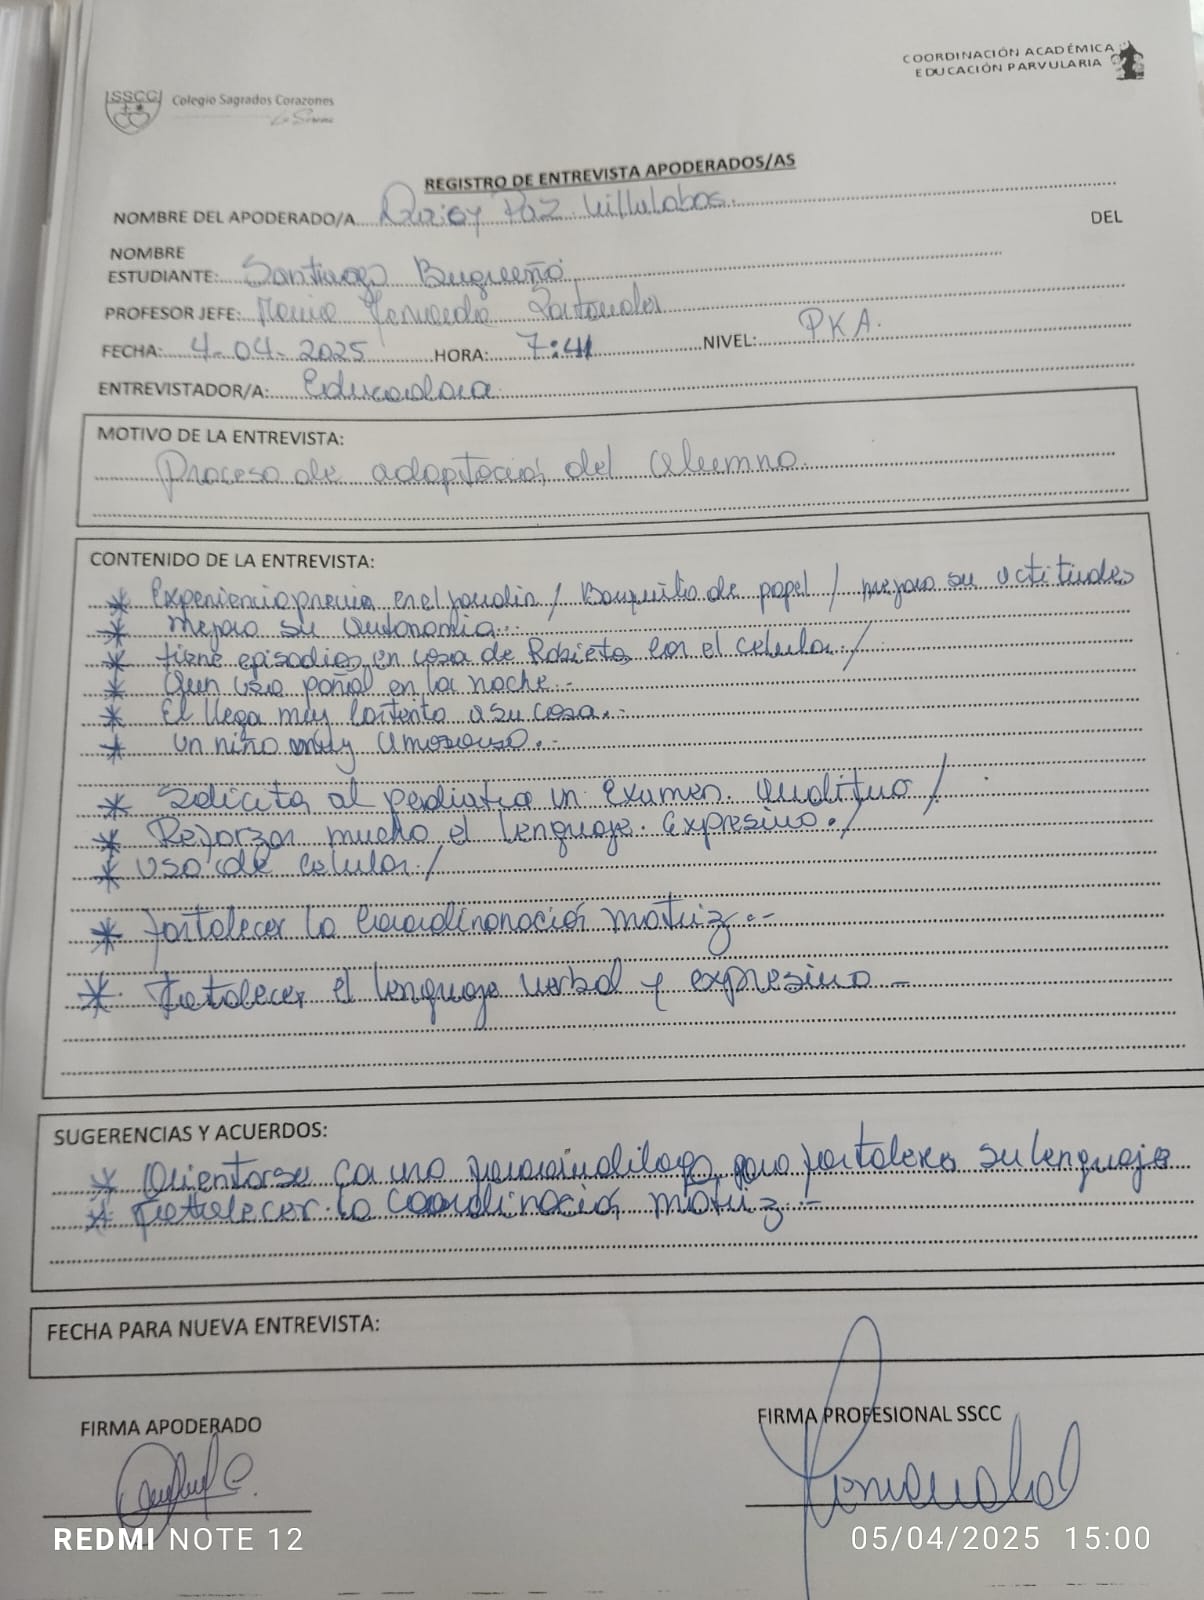 COORDINACIÓN ACADÉMICA
EDUCACIÓN PARVULARIA
SSCC Colegio Sagrados Corazones
La Serena
REGISTRO DE ENTREVISTA APODERADOS/AS
NOMBRE DEL APODERADO/A Paz Villalobos.
DEL
NOMBRE
ESTUDIANTE: Santiago Bugueño
PROFESOR JEFE: Fernanda
FECHA: 4-04-2025 HORA: 7:41 NIVEL: PKA.
ENTREVISTADOR/A: Educadora
MOTIVO DE LA ENTREVISTA:
Proceso de adaptación del alumno.
CONTENIDO DE LA ENTREVISTA:
* Experiencia previa en el jardín / Barquito de papel / mejoro su actitudes
* mejoro su autonomía.-
* tiene episodios en casa de Rabieta con el celular /
* Aun usa pañal en la noche.-
* El llega muy contento a su casa.-
* un niño muy amoroso.-
* Solicita al pediatra un examen. auditivo /
* Reforzar mucho el lenguaje. expresivo. /
* uso de celular /
* fortalecer la coordinonación motriz.-
* Fortalecer el lenguaje verbal y expresivo -
SUGERENCIAS Y ACUERDOS:
* Orientarse una para fortalecer su lenguaje
* Fortalecer la coordinación motriz.-
FECHA PARA NUEVA ENTREVISTA:
FIRMA APODERADO
FIRMA PROFESIONAL SSCC
REDMI NOTE 12
05/04/2025 15:00